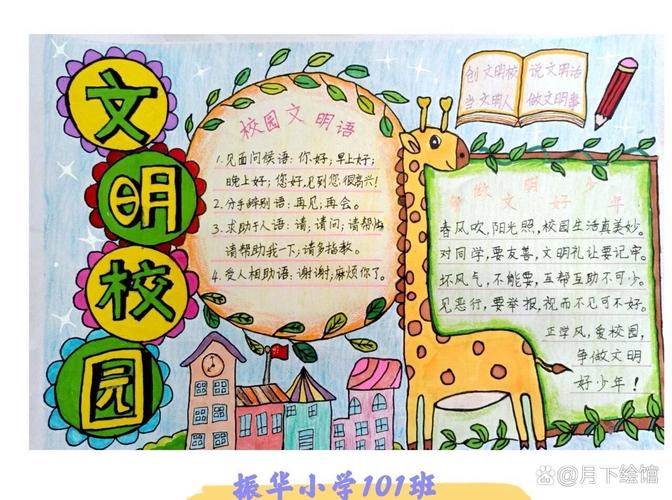 文明校园
创文明校 说文明话
当文明人 做文明事
校园文明语
1.见面问候语:你好;早上好;
晚上好;您好,见到您很高兴!
2.分手辞别语:再见;再会。
3.求助于人语:请;请问;请帮忙
请帮助我一下;请多指教。
4.受人相助语:谢谢;麻烦你了。
争做文明好少年
春风吹,阳光照,校园生活真美妙。
对同学,要友善,文明礼让要记牢。
坏风气,不能要,互帮互助不可少。
见恶行,要举报,视而不见可不好。
正学风,爱校园,
争做文明
好少年!
振华小学101班
@月下绘馆